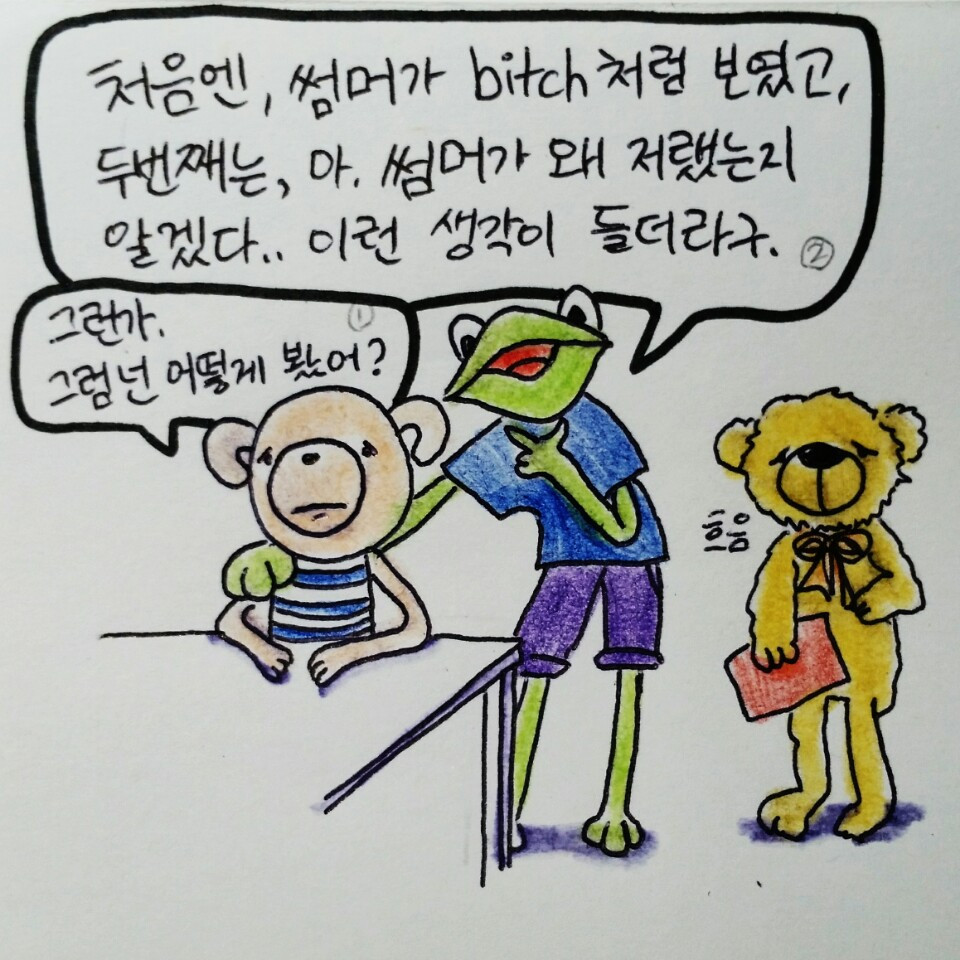 그런가. ①
그럼 넌 어떻게 봤어?
처음엔, 썸머가 bitch처럼 보였고,
두번째는, 아. 썸머가 왜 저랬는지
알겠다.. 이런 생각이 들더라구. ②
흐음